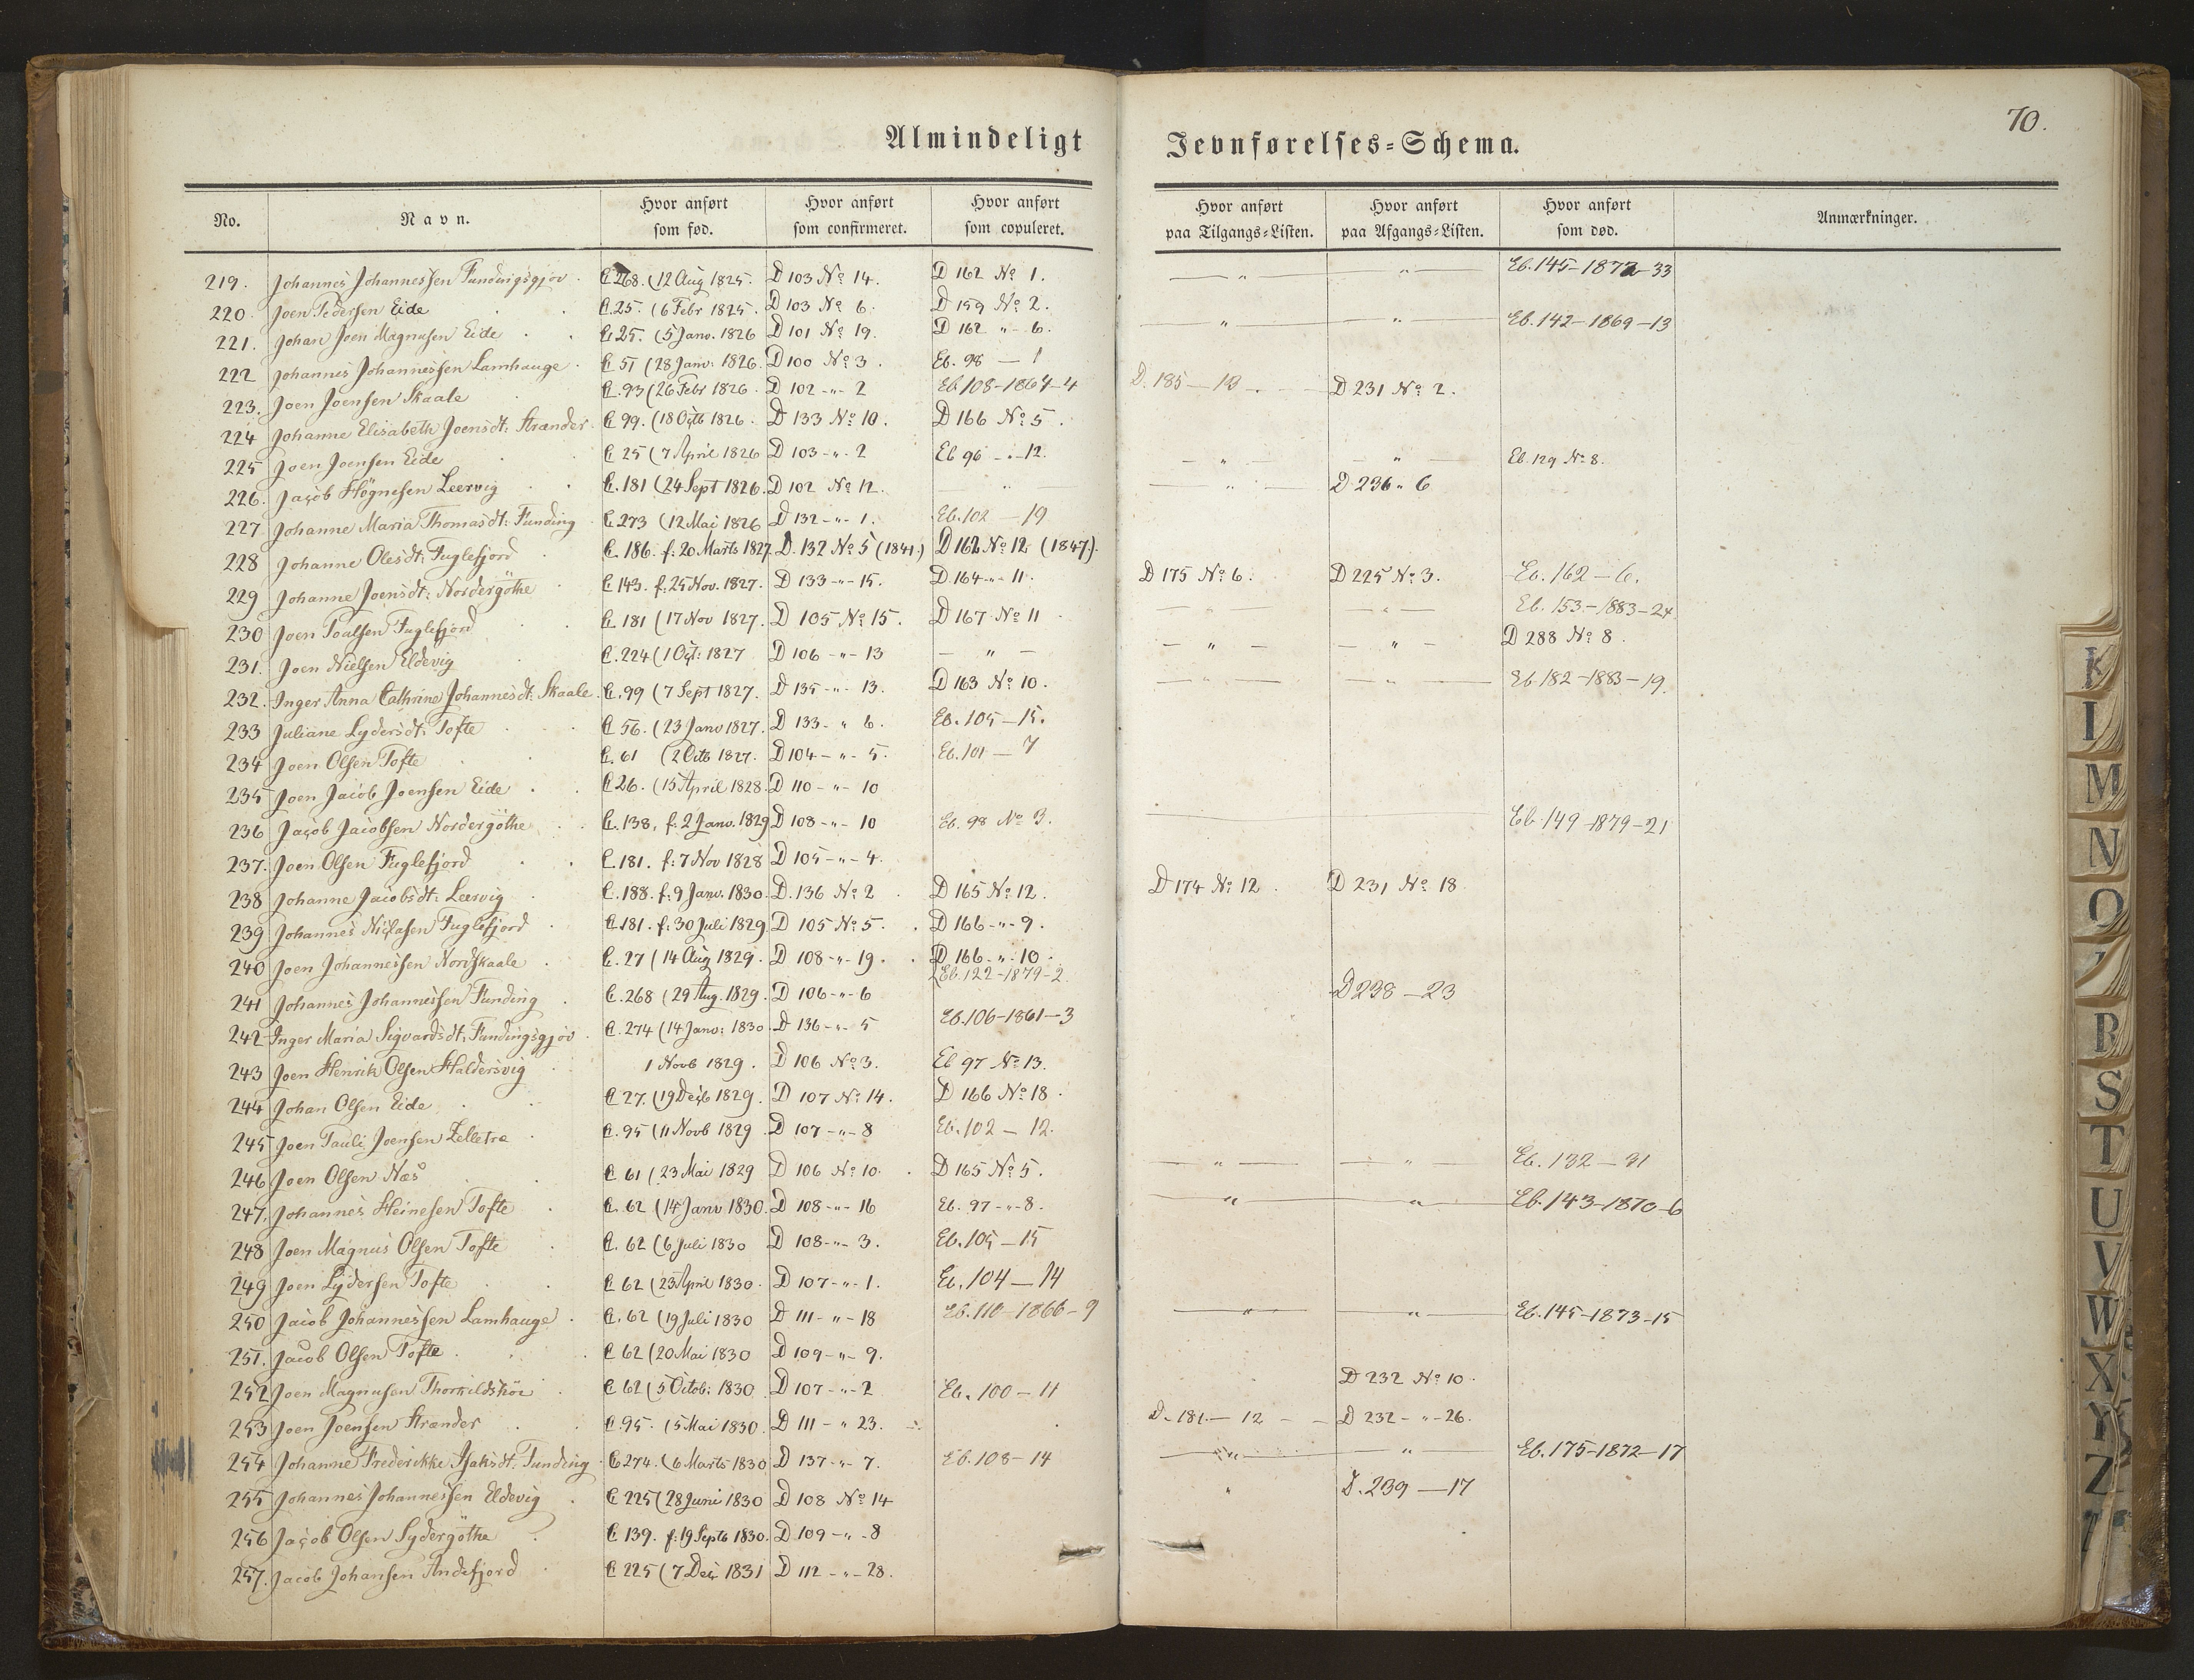 70.
Almindeligt Jevnførelses-Schema.
No. | Navn. | Hvor anført som fød. | Hvor anført som confirmeret. | Hvor anført som copuleret. | Hvor anført paa Tilgangs-Listen. | Hvor anført paa Afgangs-Listen. | Hvor anført som død. | Anmærkninger.
219. Johannes Johannessen Fundingsgjov. C 268. (12 Aug 1825. D 103 No 14. D 162 No 1. — " — — " — Eb. 145-1872-33
220. Joen Pedersen Eide C. 25. (6 Febr 1825. D 103 No 6. D 159 No 2.
221. Johan Joen Magnusen Eide C 25. (5 Janv. 1826 D 101 No 19. D 162 " - 6. — " — — " — Eb. 142-1869-13
222 Johannes Johannessen Lamhauge C 51 (28 Janv. 1826. D 100 No 3. Eb. 98 — 1
223. Joen Joensen Skaale C. 93 (26 Febr 1826. D 102 -"- 2 Eb. 108-1864-4 D. 185 — 18 D 231 No 2.
224 Johanne Elisabeth Joensdt: Strænder C 99. (18 Octb 1826. D 133 No 10. D 166 No 5.
225 Joen Joensen Eide C 25 (7 April 1826 D 103 -"- 2 Eb 96 -"- 12. — " — — " — Eb. 129 No 8.
226. Jacob Høgnesen Leervig C. 181 (24 Sept 1826. D 102 No 12. — " — — " — D 236 " 6
227 Johanne Maria Thomasdt: Funding C. 273 (12 Mai 1826 D 132 -"- 1. Eb. 102 — 19
228 Johanne Olesdt: Fuglefjord C. 186. f: 20 Marts 1827. D. 132 No 5 (1841.) D 162 No 12 (1847).
229 Johanne Joensdt: Nordergöthe C 143. f: 25 Nov. 1827. D 133 -"- 15. D 164 -"- 11. D 175 No 6. D 225 No 3. Eb. 162 — 6.
230 Joen Poulsen Fuglefjord C. 181 (17 Nov 1827. D 105 No 15. D 167 No 11 — " — — " — Eb. 153-1883-24
231. Joen Nielsen Eldevig C. 224 (1 Oct: 1827 D 106 -"- 13 — " — — " — — " — D 288 No 8.
232. Inger Anna Cathrine Johannesdt: Skaale. C. 99 (7 Sept 1827. D 135 -"- 13. D 163 No 10. — " — — " — Eb 182-1883-19.
233 Juliane Lydersdt: Tofte C 56. (23 Janv 1827. D 133 - " 6. Eb. 105 — 15.
234 Joen Olsen Tofte C. 61 (2 Octb 1827. D 104 — " - 5. Eb. 101 — 7
235 Joen Jacob Joensen Eide C 26. (15 April 1828. D 110 -"- 10
236 Jacob Jacobsen Nordergöthe C. 138. f: 2 Janv. 1829 D 108 -"- 10 Eb. 98 No 3. Eb. 149-1879-21
237. Joen Olsen Fuglefjord C. 181. f: 7 Nov 1828 D 105 -"- 4.
238 Johanne Jacobsdt: Leervig C. 188. f: 9 Janv. 1830. D. 136 No 2 D 165 No 12. D 174 No 12. D 231 No 18
239 Johannes Niclasen Fuglefjord C. 181. f: 30 Juli 1829 D 105 No 5. D 166 -"- 9.
240 Joen Johannessen Nordskaale C. 27 (14 Aug 1829. D 108 -"- 19. D 166 -"- 10. (Eb. 122-1879-2
241 Johannes Johannessen Funding C. 268 (29 Aug. 1829. D 106 -"- 6 D 238 — 23
242 Inger Maria Sigvardsdt: Fundingsgjov C. 274 (14 Janv: 1830. D 136 -"- 5 Eb. 106-1861-3
243 Joen Henrik Olsen Haldersvig 1 Novb 1829. D 106 No 3. Eb 97 No 13.
244 Johan Olsen Eide C 27. (19 Decb 1829. D 107 No 14. D 166 No 18.
245 Joen Pauli Joensen Zelletræ C. 95 (11 Novb 1829. D 107 -"- 8 Eb. 102 — 12.
246 Joen Olsen Næs C 61 (23 Mai 1829 D 106 No 10. D 165 No 5. — " — — " — Eb. 132 — 31
247. Johannes Heinesen Tofte C. 62 (14 Janv 1830. D 108 -"- 16 Eb. 97 -"- 8. — " — — " — Eb. 143-1870-6
248 Joen Magnus Olsen Tofte C. 62 (6 Juli 1830 D 108 -"- 3. Eb. 105 — 15
249 Joen Lydersen Tofte C 62 (23 April 1830. D 107 -"- 1. Eb. 104 — 14
250 Jacob Johannessen Lamhauge. C. 62 (19 Juli 1830 D 111 -"- 18 Eb. 110-1866-9 — " — — " — Eb. 145-1873-15
251. Jacob Olsen Tofte C 62 (20 Mai 1830 D 109 -"- 9.
252 Joen Magnusen C 62 (5 Octob: 1830. D 107 -"- 2 Eb. 100 — 11 D 232 No 10.
253 Joen Joensen Strænder C. 95. (5 Mai 1830. D 111 - " 23. D. 181. — 12 D 232 -"- 26.
254 Johanne Frederikke Funding C 274. (6 Marts 1830 D 137 -"- 7. Eb. 108 — 14 — " — — " — Eb. 175-1872-17
255 Johannes Johannessen Eldevig C 225 (28 Juni 1830 D 108 No 14 " D. 239 — 17
256 Jacob Olsen Sydergöthe C 139. f: 19 Septb 1830. D 109 -"- 8
257. Jacob Johansen Andefjord C 225 (7 Dec 1831 D 112 -"- 28.
K
I
M
N
O
R
S
T
U
V
W
X
Y
Z